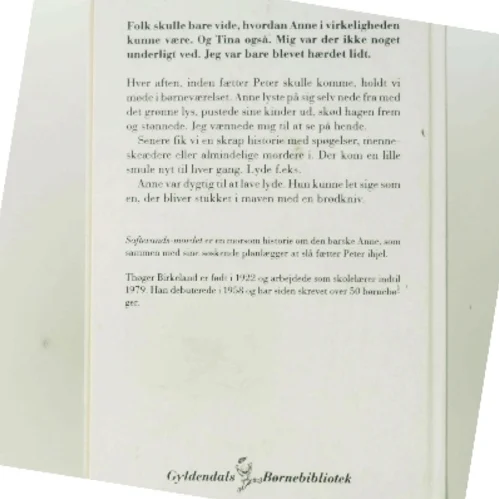 Folk skulle bare vide, hvordan Anne i virkeligheden
kunne være. Og Tina også. Mig var der ikke noget
underligt ved. Jeg var bare blevet hærdet lidt.
Hver aften, inden fætter Peter skulle komme, holdt vi
møde i børneværelset. Anne lyste på sig selv nede fra med
det grønne lys, pustede sine kinder ud, skød hagen frem
og stønnede. Jeg vænnede mig til at se på hende.
Senere fik vi en skrap historie med spøgelser, menne-
skeædere eller almindelige mordere i. Der kom en lille
smule nyt til hver gang. Lyde f.eks.
Anne var dygtig til at lave lyde. Hun kunne let sige som
en, der bliver stukket i maven med en brødkniv.
Saftevands-mordet er en morsom historie om den barske Anne, som
sammen med sine søskende planlægger at slå fætter Peter ihjel.
Thøger Birkeland er født i 1922 og arbejdede som skolelærer indtil
1979. Han debuterede i 1958 og har siden skrevet over 50 børnebø-
ger.
Gyldendals Børnebibliotek